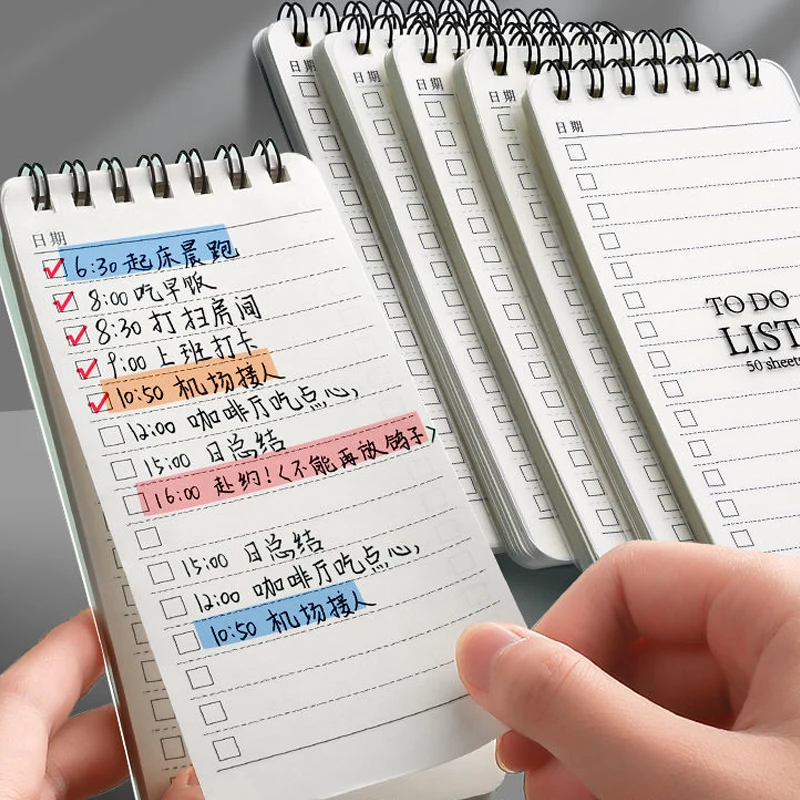 日期
日期
日期
日期
日期
日期
6:30 起床晨跑
8:00 吃早饭
8:30 打扫房间
9:00 上班打卡
10:50 机场接人
12:00 咖啡厅吃点心
15:00 日总结
16:00 赴约!<不能再放鸽子>
15:00 日总结
12:00 咖啡厅吃点心
10:50 机场接人
TO DO
LIST
50 sheets